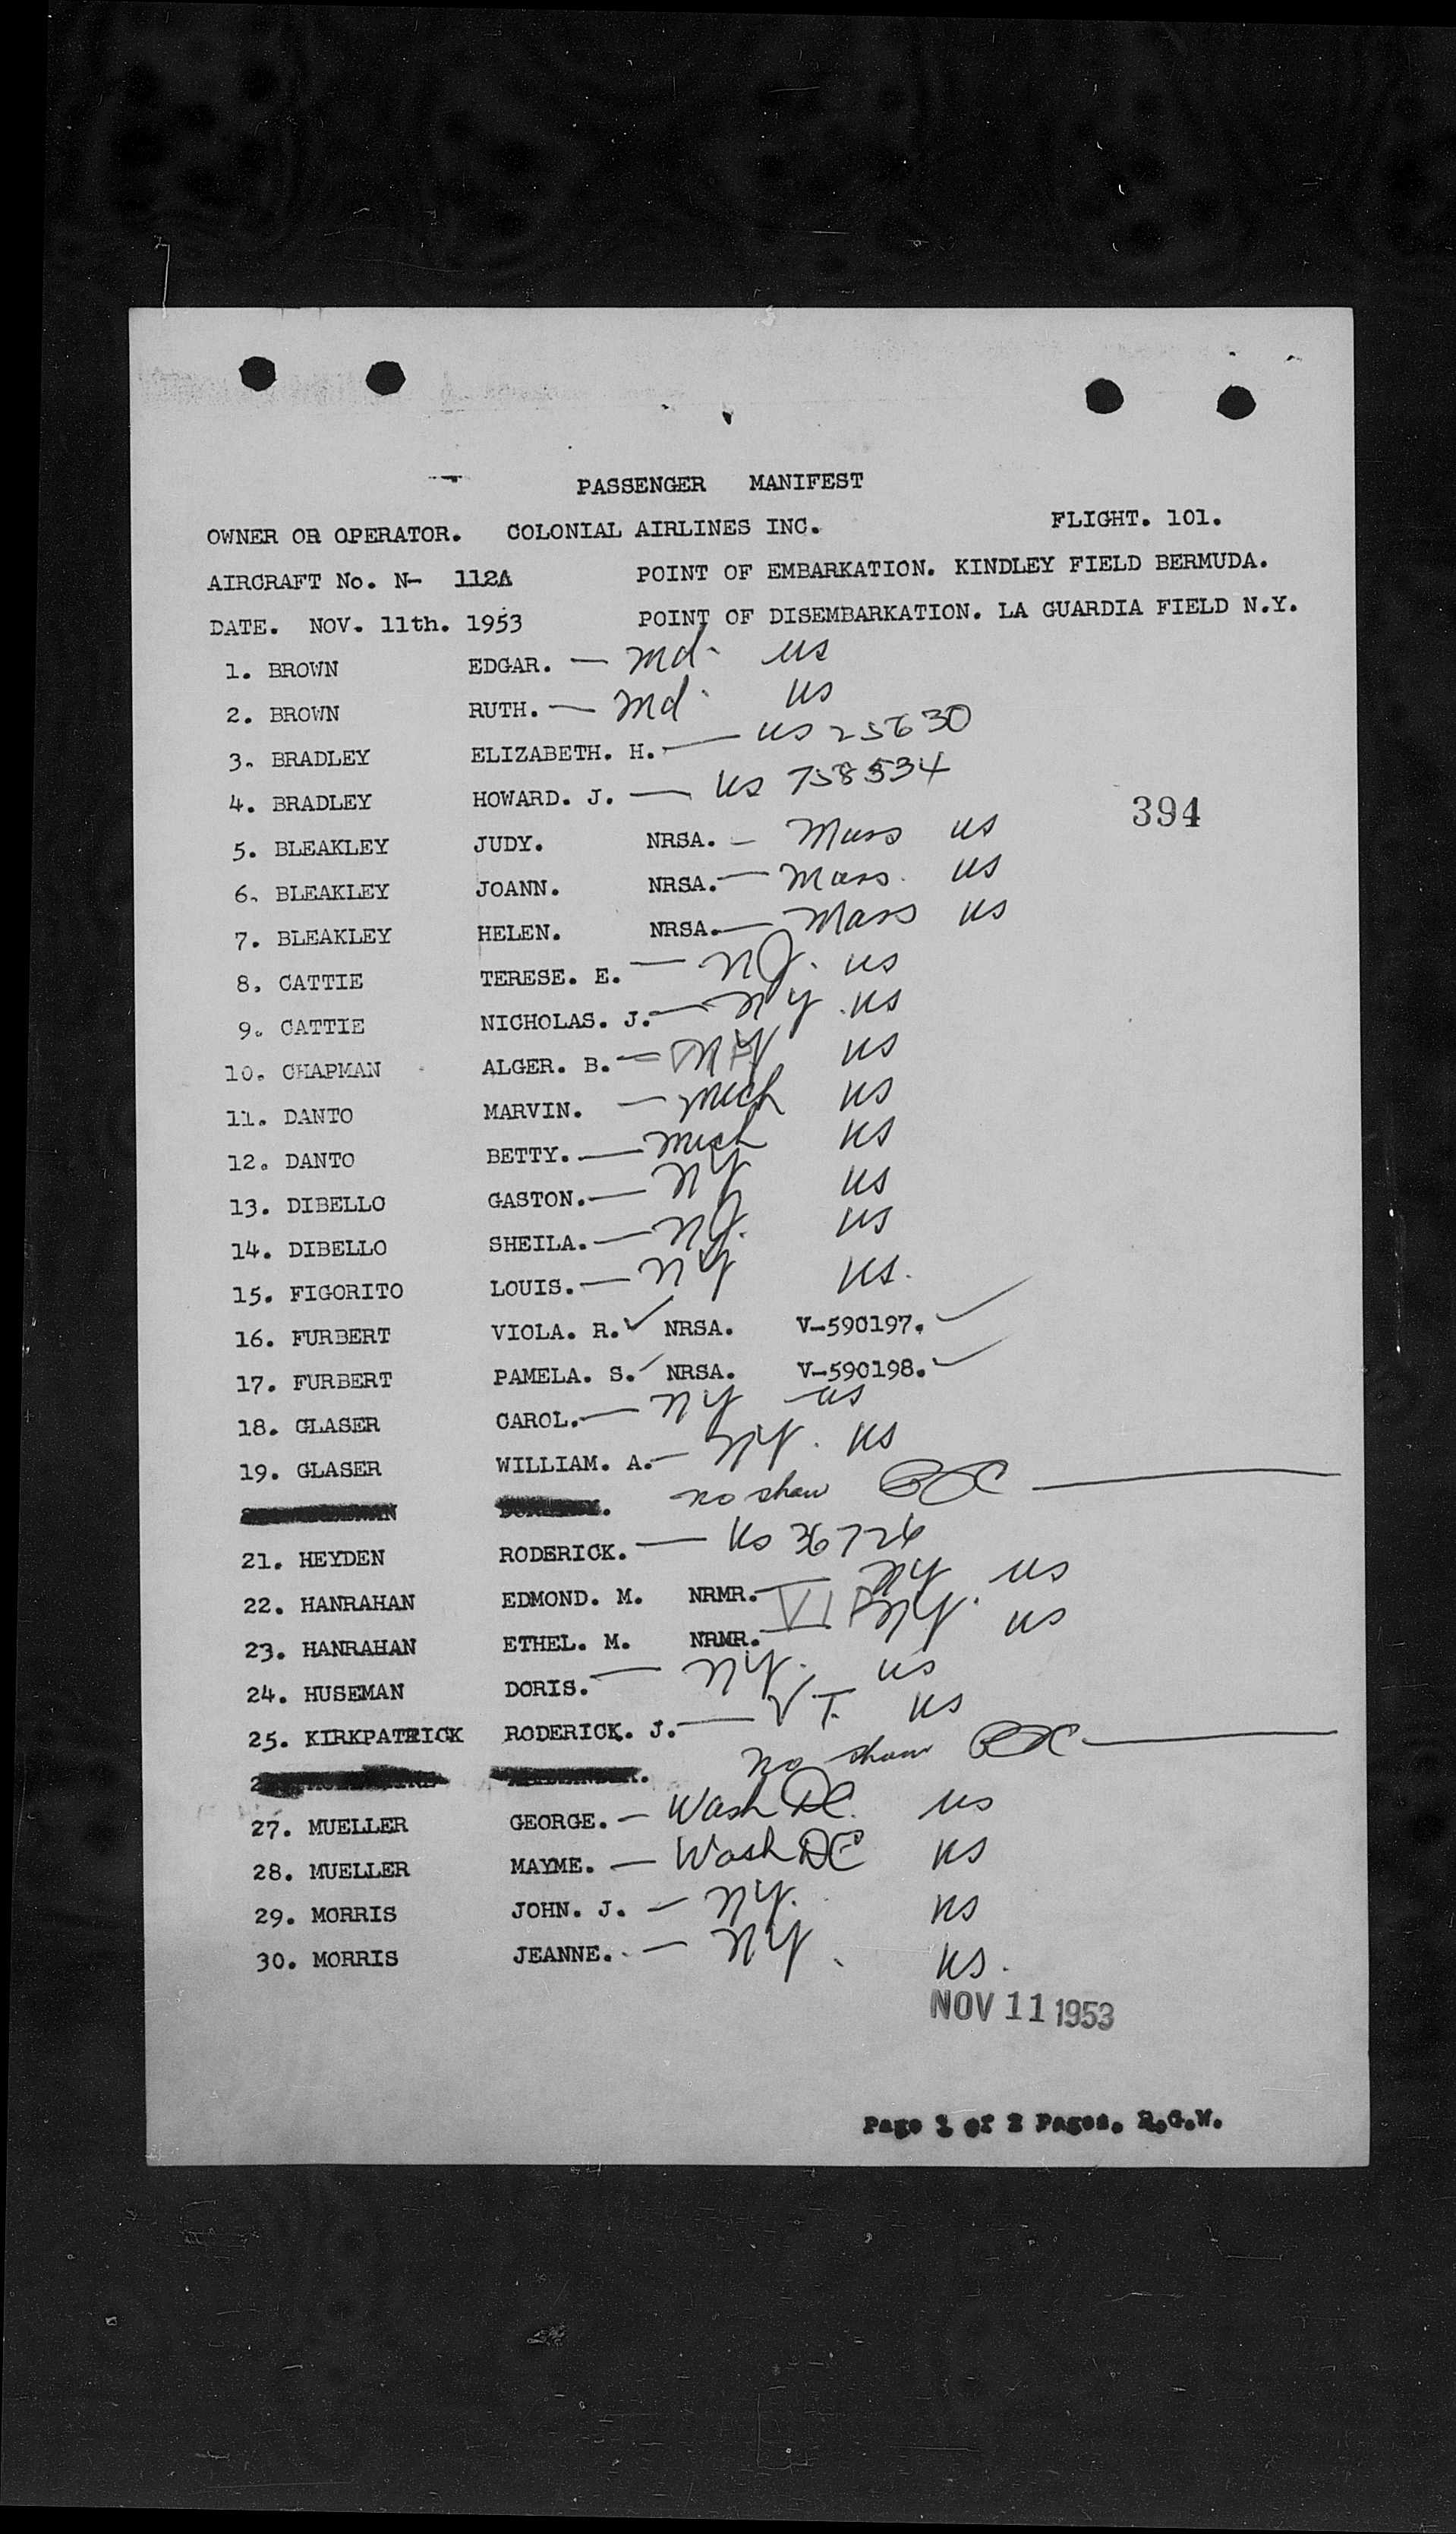 PASSENGER MANIFEST
OWNER OR OPERATOR. COLONIAL AIRLINES INC. FLIGHT. 101.
AIRCRAFT No. N- 112A POINT OF EMBARKATION. KINDLEY FIELD BERMUDA.
DATE. NOV. 11th. 1953 POINT OF DISEMBARKATION. LA GUARDIA FIELD N.Y.
1. BROWN EDGAR. — Md. US
2. BROWN RUTH. — Md. US
3. BRADLEY ELIZABETH. H. — US 25630
4. BRADLEY HOWARD. J. — US 758534
394
5. BLEAKLEY JUDY. NRSA. — Mass US
6. BLEAKLEY JOANN. NRSA. — Mass. US
7. BLEAKLEY HELEN. NRSA. — Mass US
8. CATTIE TERESE. E. — NJ. US
9. CATTIE NICHOLAS. J. — NY. US
10. CHAPMAN ALGER. B. — NY US
11. DANTO MARVIN. — Mich US
12. DANTO BETTY. — Mich US
13. DIBELLO GASTON. — NY US
14. DIBELLO SHEILA. — NJ. US
15. FIGORITO LOUIS. — NY US.
16. FURBERT VIOLA. R. ✓ NRSA. V-590197. ✓
17. FURBERT PAMELA. S. ✓ NRSA. V-590198. ✓
18. GLASER CAROL. — NY US
19. GLASER WILLIAM. A. — NY. US
no show
21. HEYDEN RODERICK. — US 36726
22. HANRAHAN EDMOND. M. NRMR. — NY US
23. HANRAHAN ETHEL. M. NRMR. — NY. US
24. HUSEMAN DORIS. — NY. US
25. KIRKPATRICK RODERICK. J. — VT. US
no show
27. MUELLER GEORGE. — Wash DC. US
28. MUELLER MAYME. — Wash DC US
29. MORRIS JOHN. J. — NY. US
30. MORRIS JEANNE. — NY. US.
NOV 11 1953
Page 1 of 2 Pages. R.G.W.